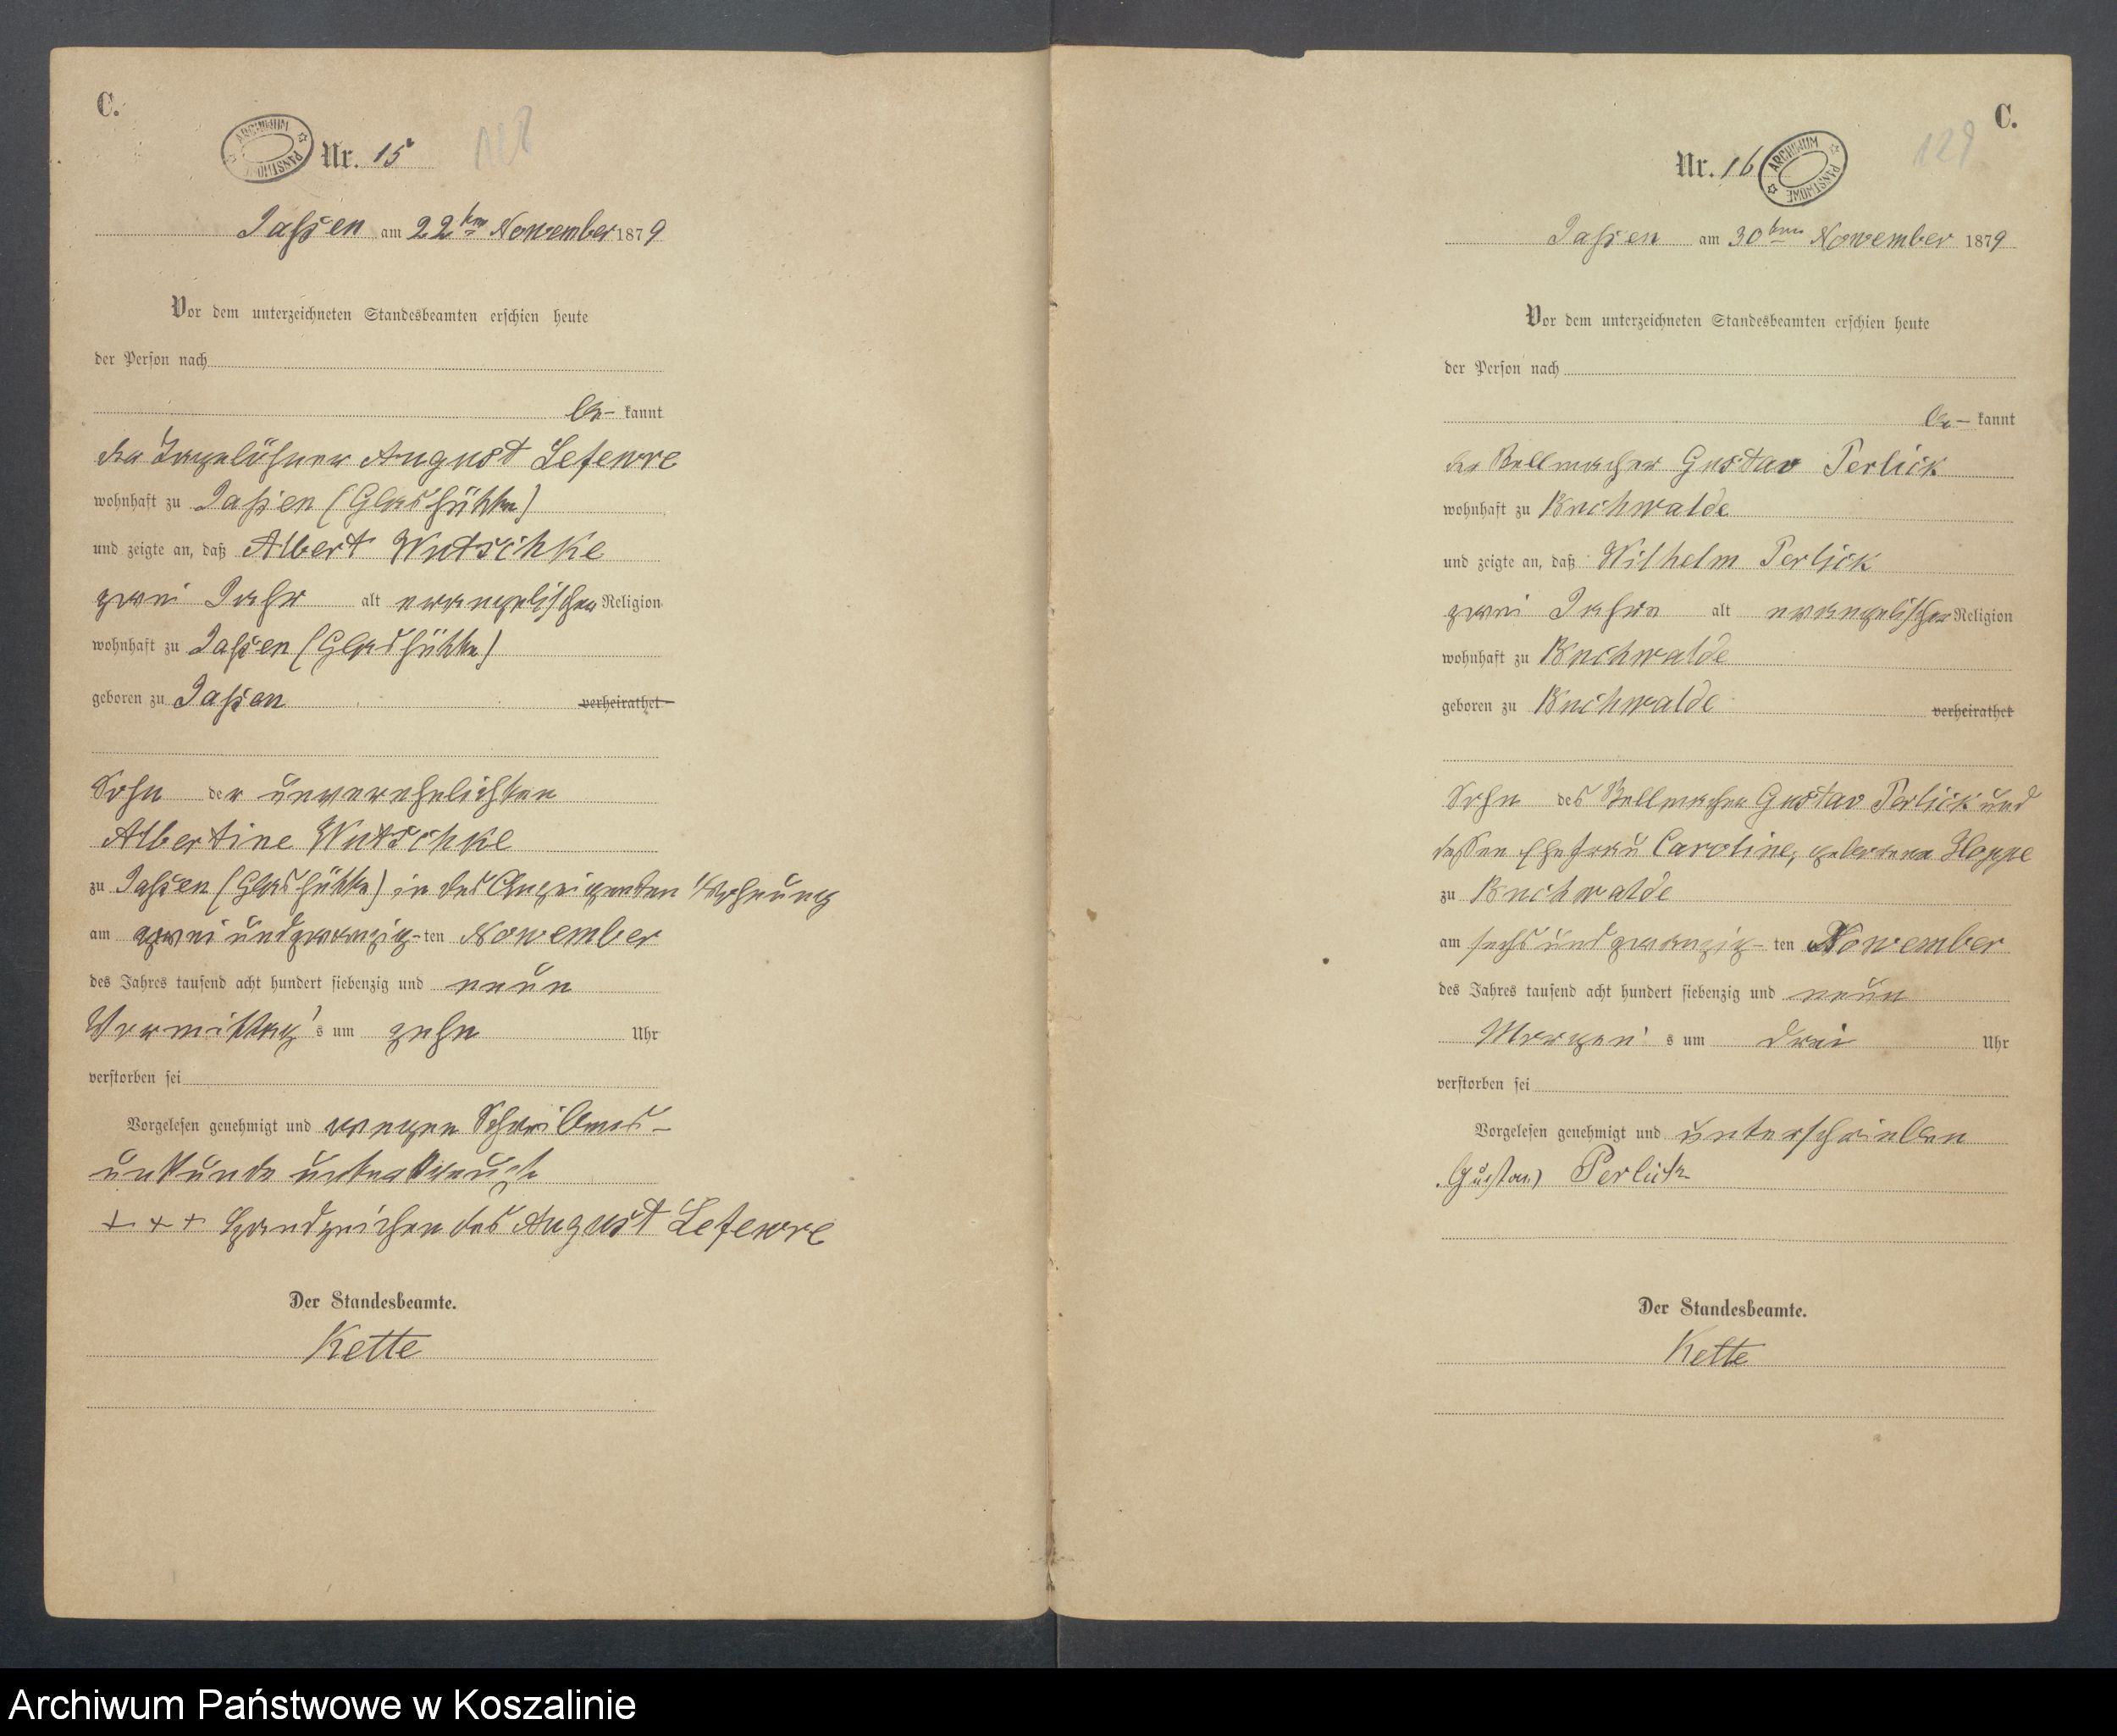 C.
ARCHIWUM PAŃSTWOWE
Nr. 15
128
Jassen am 22ten November 1879
Vor dem unterzeichneten Standesbeamten erschien heute
der Person nach
be- kannt
der Tagelöhner August Lefewre
wohnhaft zu Jassen (Glashütte)
und zeigte an, daß Albert Wutschke
zwei Jahr alt evangelischer Religion
wohnhaft zu Jassen (Glashütte)
geboren zu Jassen verheirathet
Sohn der unverehelichten
Albertine Wutschke
zu Jassen (Glashütte) in des Anzeigenden Wohnung
am zwei und zwanzig-ten November
des Jahres tausend acht hundert siebenzig und neun
Vormittag's um zehn Uhr
verstorben sei
Vorgelesen genehmigt und wegen Schreibens-
unkunde unterkreuzt
+ + + Handzeichen des August Lefewre
Der Standesbeamte.
Kette
C.
Nr. 16
ARCHIWUM PAŃSTWOWE
129
Jassen am 30ten November 1879
Vor dem unterzeichneten Standesbeamten erschien heute
der Person nach
be- kannt
der Gustav Perlick
wohnhaft zu Buchwalde
und zeigte an, daß Wilhelm Perlick
zwei Jahre alt evangelischer Religion
wohnhaft zu Buchwalde
geboren zu Buchwalde verheirathet
Sohn des Gustav Perlick und
dessen Ehefrau Caroline, geborenen Hoppe
zu Buchwalde
am sechs und zwanzig-ten November
des Jahres tausend acht hundert siebenzig und neun
Morgen's um drei Uhr
verstorben sei
Vorgelesen genehmigt und unterschrieben
Gustav Perlick
Der Standesbeamte.
Kette
Archiwum Państwowe w Koszalinie